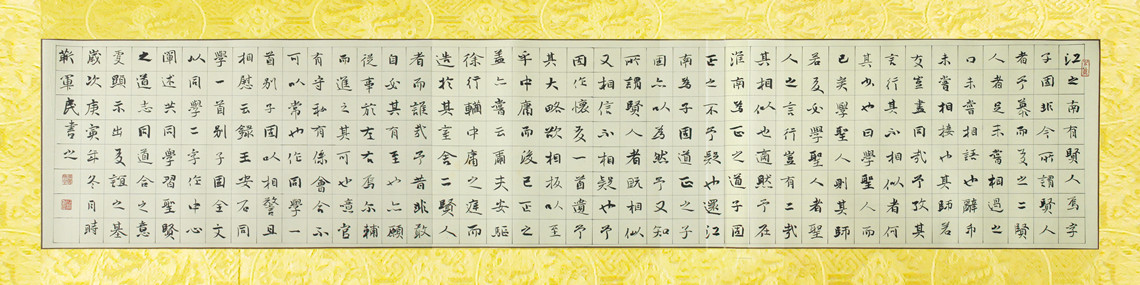 江之南有賢人焉字
子固非今所謂賢人
者予慕而友之二賢
人者足未嘗相過之
口未嘗相語也辭币
未嘗相接也其師若
友豈盡同哉予攷其
言行其不相似者何
其少也曰學聖人而
已矣學聖人則其師
若友必學聖人者聖
人之言行豈有二哉
其相似也適然予在
淮南為正之道子固
正之不予疑也還江
南為子固道正之子
固亦以為然予又知
所謂賢人者既相似
又相信不相疑也子
固作懷友一首遺予
其大略欲相扳以至
乎中庸而後已正之
蓋亦嘗云爾夫安驅
徐行轥中庸之庭而
造於其室舍二賢人
者而誰哉予昔非敢
自必其有至也亦願
從事於左右焉尔輔
而進之其可也噫官
有守私有係會合不
可以常也作同學一
首别子固以相警且
相慰云錄王安石同
學一首别子固全文
以同學二字作中心
闡述共同學習聖賢
之道志同道合之意
更顯示出友誼之基
歲次庚寅年冬月時
靳軍民書之